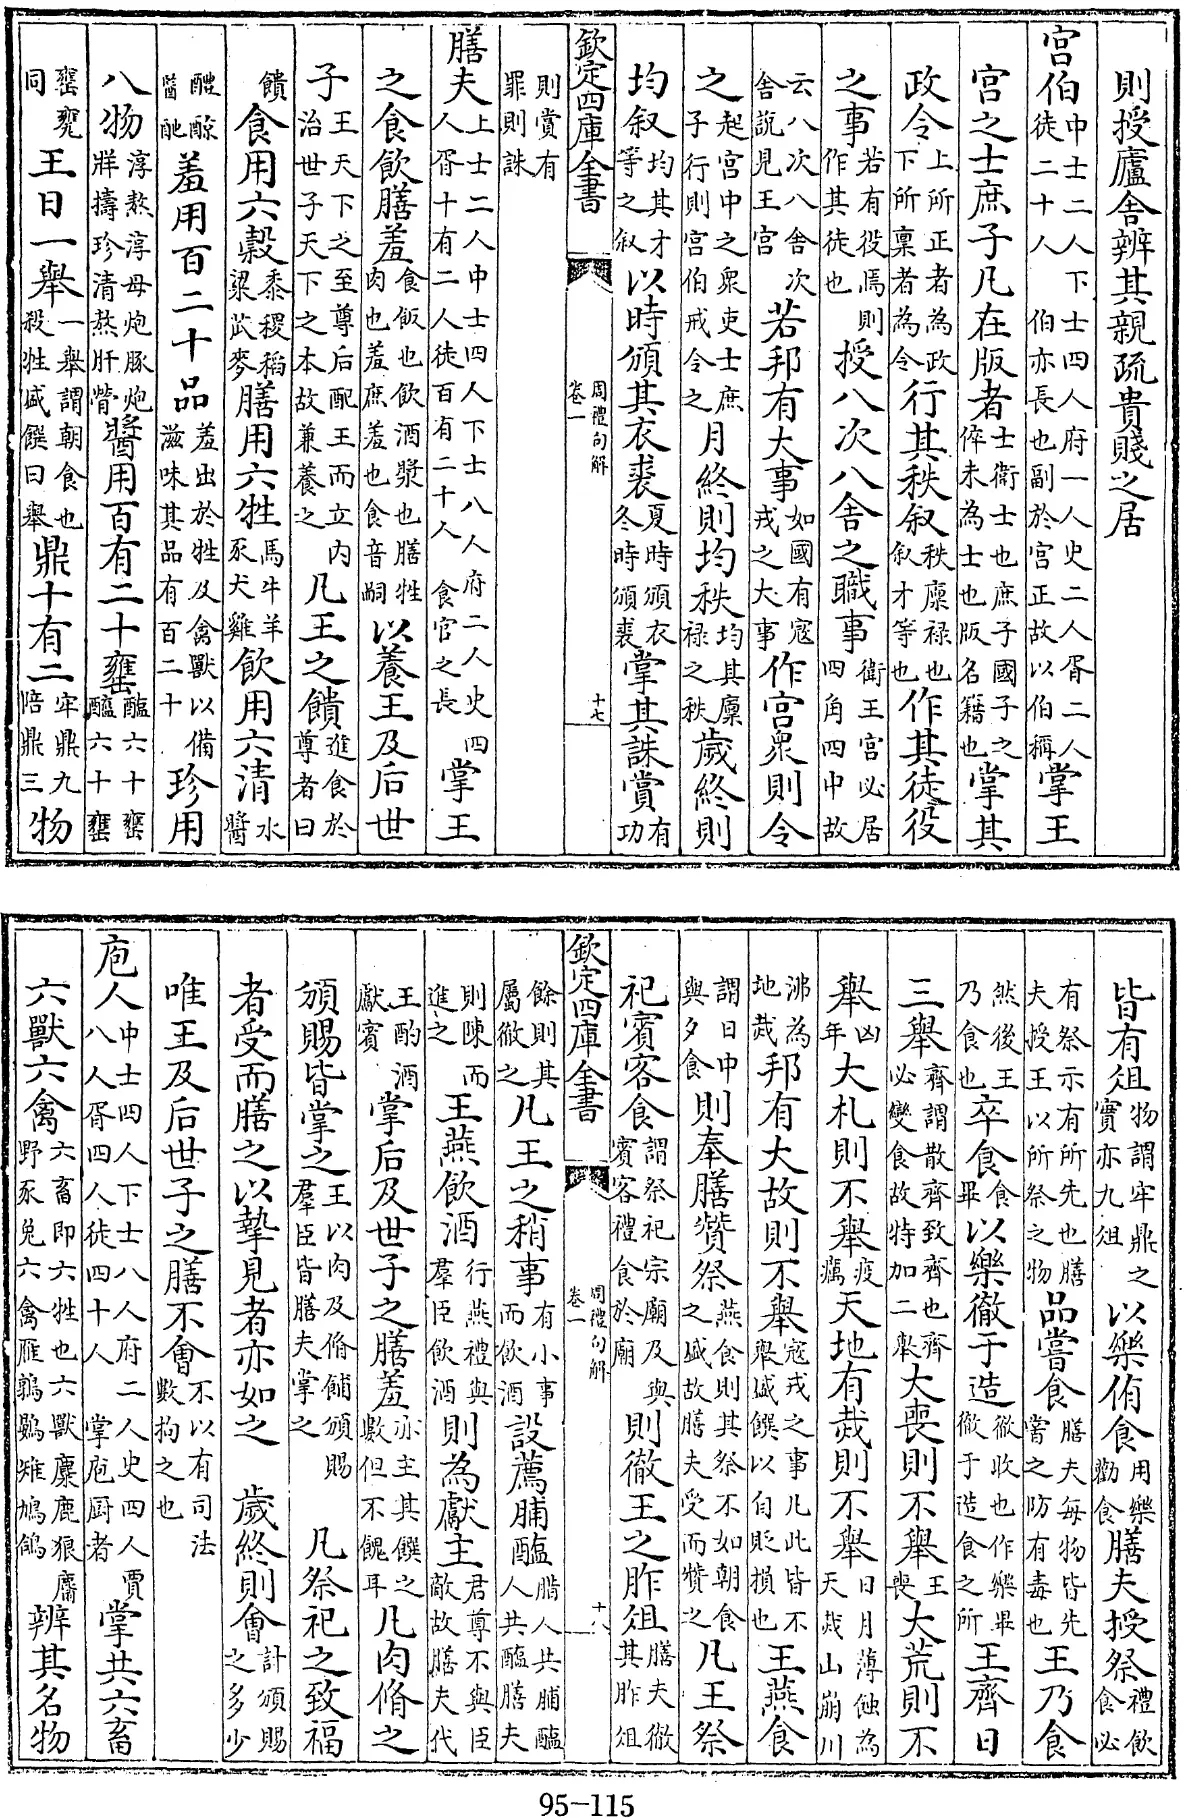 則授廬舎辨其親疏貴賤之居
宫伯中士二人下士四人府一人史二人胥二人徒二十人伯亦長也副於宫正故以伯稱掌王
宫之士庶子凡在版者士衛士也庶子國子之倅未為士也版名籍也掌其
政令上所正者為政下所稟者為令行其秩叙秩廪禄也叙才等也作其徒役
之事若有役焉則作其徒也授八次八舍之職事衛王宫必居四角四中故
云八次八舍次舍說見王宫若邦有大事如國有寇戎之大事作宫衆則令
之起宫中之衆吏士庶子行則宫伯戒令之月終則均秩均其廪禄之秩歲終則
均叙均其才等之叙以時頒其衣裘夏時頒衣冬時頒裘掌其誅賞有功
欽定四庫全書 周禮句解 卷一 十七
則賞有罪則誅
膳夫上士二人中士四人下士八人府二人史四人胥十有二人徒百有二十人食官之長掌王
之食飲膳羞食飯也飲酒漿也膳牲肉也羞庶羞也食音嗣以養王及后世
子王天下之至尊后配王而立内治世子天下之本故兼養之凡王之饋進食於尊者曰
饋食用六穀黍稷稻粱苽麥膳用六牲馬牛羊豕犬雞飲用六清水醬
醴醇醫酏羞用百二十品羞出於牲及禽獸以備滋味其品有百二十珍用
八物淳熬淳母炮豚炮牂擣珍漬熬肝膋醬用百有二十罋醢六十罋醯六十罋
罋甕同王日一舉一舉謂朝食也殺牲盛饌曰舉鼎十有二牢鼎九陪鼎三物
皆有俎物謂牢鼎之實亦九俎以樂侑食用樂勸食膳夫授祭禮飲食必
有祭示有所先也膳夫授王以所祭之物品嘗食膳夫每物皆先嘗之防有毒也王乃食
然後王乃食也卒食食畢以樂徹于造徹收也作樂畢徹于造食之所王齊日
三舉齊謂散齊致齊也齊必變食故特加二舉大喪則不舉王喪大荒則不
舉凶年大札則不舉疫癘天地有烖則不舉日月薄蝕為天烖山崩川
沸為地烖邦有大故則不舉寇戎之事凡此皆不舉盛饌以自貶損也王燕食
謂日中與夕食則奉膳贊祭燕食則其祭不如朝食之盛故膳夫受而贊之凡王祭
祀賓客食謂祭祀宗廟及與賓客禮食於廟則徹王之胙俎膳夫徹其胙俎
欽定四庫全書 周禮句解 卷一 十八
餘則其屬徹之凡王之稍事有小事而飲酒設薦脯醢腊人共脯醢人共醢膳夫
則陳而進之王燕飲酒行燕禮與羣臣飲酒則為獻主君尊不與臣敵故膳夫代
王酌酒獻賓掌后及世子之膳羞亦主其饌之數但不餽耳凡肉脩之
頒賜皆掌之王以肉及脩脯頒賜羣臣皆膳夫掌之凡祭祀之致福
者受而膳之以摯見者亦如之歲終則會計頒賜之多少
唯王及后世子之膳不會不以有司法數拘之也
庖人中士四人下士八人府二人史四人賈八人胥四人徒四十人掌庖厨者掌共六畜
六獸六禽六畜即六牲也六獸麋鹿狼麕野豕兔六禽雁鶉鷃雉鳩鴿辨其名物
95-115